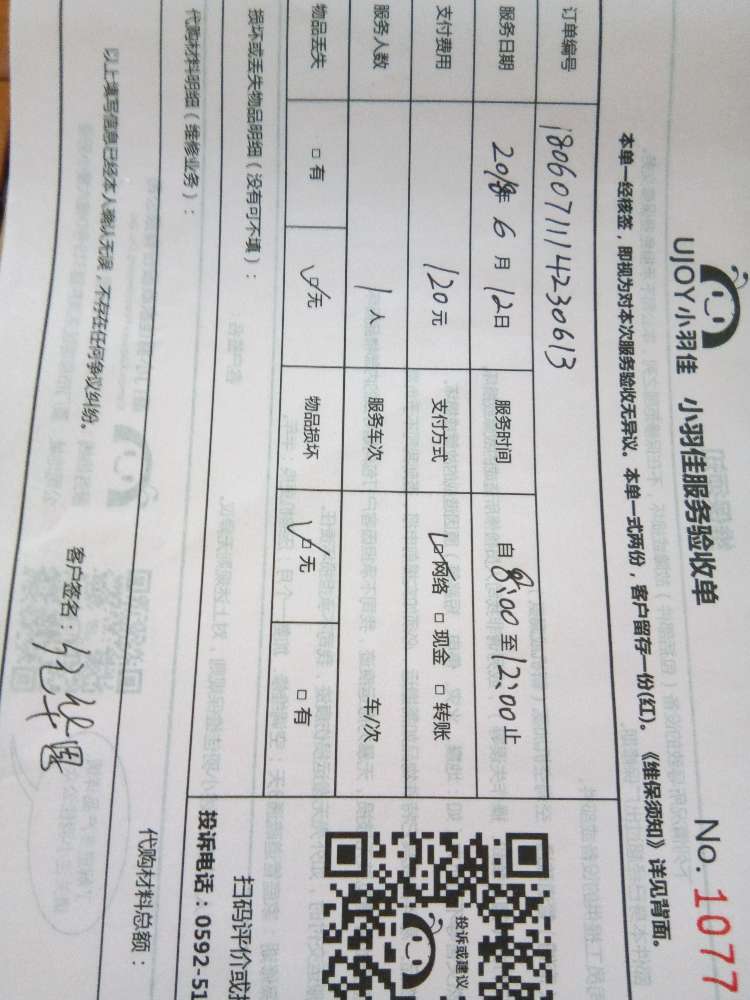 UJOY小羽佳 小羽佳服务验收单 No. 1077
本单一经核签，即视为对本次服务验收无异议。本单一式两份，客户留存一份(红)。《维保须知》详见背面。
订单编号 1806071114230613
服务日期 2018年 6 月 12 日 服务时间 自 8:00 至 12:00 止
支付费用 120 元 支付方式 □ 网络 □ 现金 □ 转账
服务人数 1 人 服务车次 车/次
物品丢失 □ 有 □ 无 物品损坏 □ 无 □ 有
损坏或丢失物品明细（没有可不填）：
投诉或建议
扫码评价或投
投诉电话：0592-51
代购材料明细（维修业务）：
代购材料总额：
以上填写信息已经本人确认无误，不存在任何争议纠纷。 客户签名：